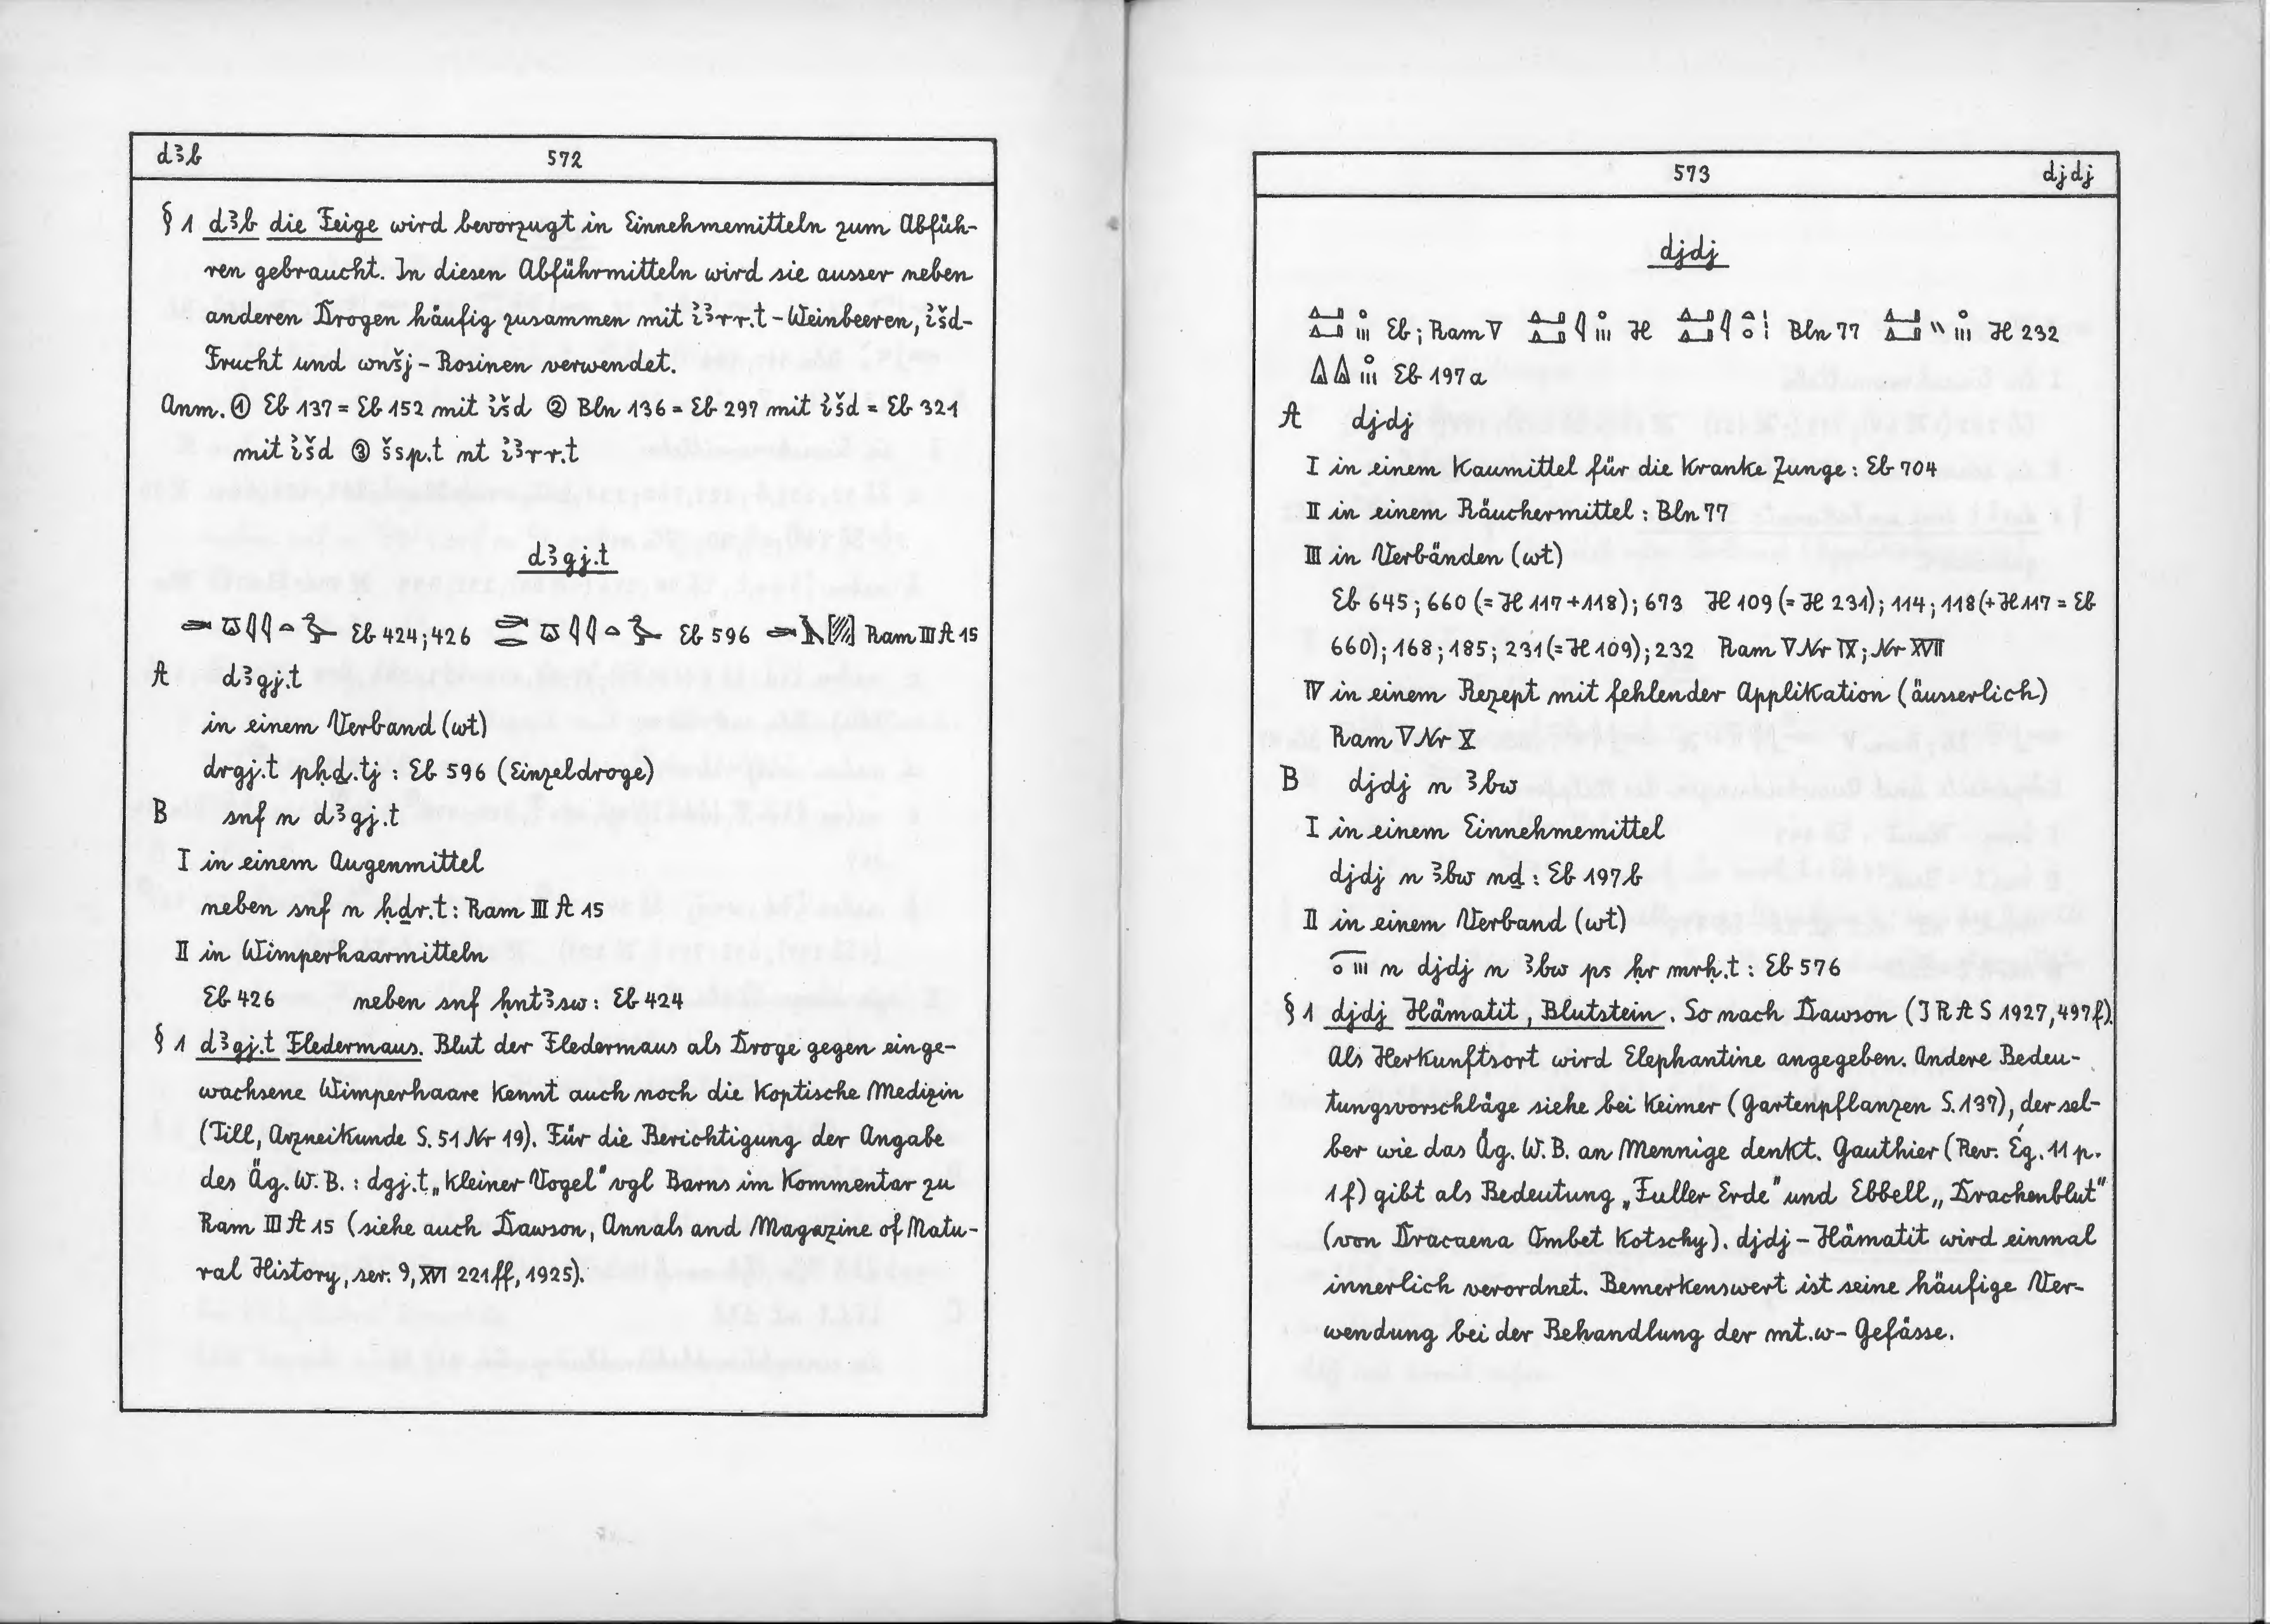 dꜣb 572
§ 1 dꜣb die Feige wird bevorzugt in Einnehmemitteln zum Abfüh-
ren gebraucht. In diesen Abführmitteln wird sie ausser neben
anderen Drogen häufig zusammen mit i̓ꜣrr.t - Weinbeeren, i̓šd-
Frucht und wnšj - Rosinen verwendet.
Anm. ① Eb 137 = Eb 152 mit i̓šd ② Bln 136 = Eb 297 mit i̓šd = Eb 321
mit i̓šd ③ šsp.t nt i̓ꜣrr.t
dꜣgj.t
Eb 424; 426 Eb 596 Ram III A 15
A dꜣgj.t
in einem Verband (wt)
drgj.t pḥḏ.tj : Eb 596 (Einzeldroge)
B snf n dꜣgj.t
I in einem Augenmittel
neben snf n ḥḏr.t : Ram III A 15
II in Wimperhaarmitteln
Eb 426 neben snf ḥntꜣsw : Eb 424
§ 1 dꜣgj.t Fledermaus. Blut der Fledermaus als Droge gegen einge-
wachsene Wimperhaare kennt auch noch die koptische Medizin
(Till, Arzneikunde S. 51 Nr 19). Für die Berichtigung der Angabe
des Äg. W. B. : dgj.t „kleiner Vogel" vgl Barns im Kommentar zu
Ram III A 15 (siehe auch Dawson, Annals and Magazine of Natu-
ral History, ser. 9, XVI 221ff, 1925).
573 djdj
djdj
Eb; Ram V H Bln 77 H 232
Eb 197a
A djdj
I in einem Kaumittel für die kranke Zunge : Eb 704
II in einem Räuchermittel : Bln 77
III in Verbänden (wt)
Eb 645; 660 (= H 117 + 118); 673 H 109 (= H 231); 114; 118 (+ H 117 = Eb
660); 168; 185; 231 (= H 109); 232 Ram V Nr IX; Nr XVII
IV in einem Rezept mit fehlender Applikation (äusserlich)
Ram V Nr X
B djdj n ꜣbw
I in einem Einnehmemittel
djdj n ꜣbw nḏ : Eb 197b
II in einem Verband (wt)
n djdj n ꜣbw ps ḥr mrḥ.t : Eb 576
§ 1 djdj Hämatit, Blutstein. So nach Dawson (J R A S 1927, 497f).
Als Herkunftsort wird Elephantine angegeben. Andere Bedeu-
tungsvorschläge siehe bei Keimer (Gartenpflanzen S. 137), der sel-
ber wie das Äg. W. B. an Mennige denkt. Gauthier (Rev. Ég. 11 p.
1f) gibt als Bedeutung „Fuller Erde" und Ebbell „Drachenblut"
(von Dracaena Ombet Kotschy). djdj - Hämatit wird einmal
innerlich verordnet. Bemerkenswert ist seine häufige Ver-
wendung bei der Behandlung der mt.w - Gefässe.